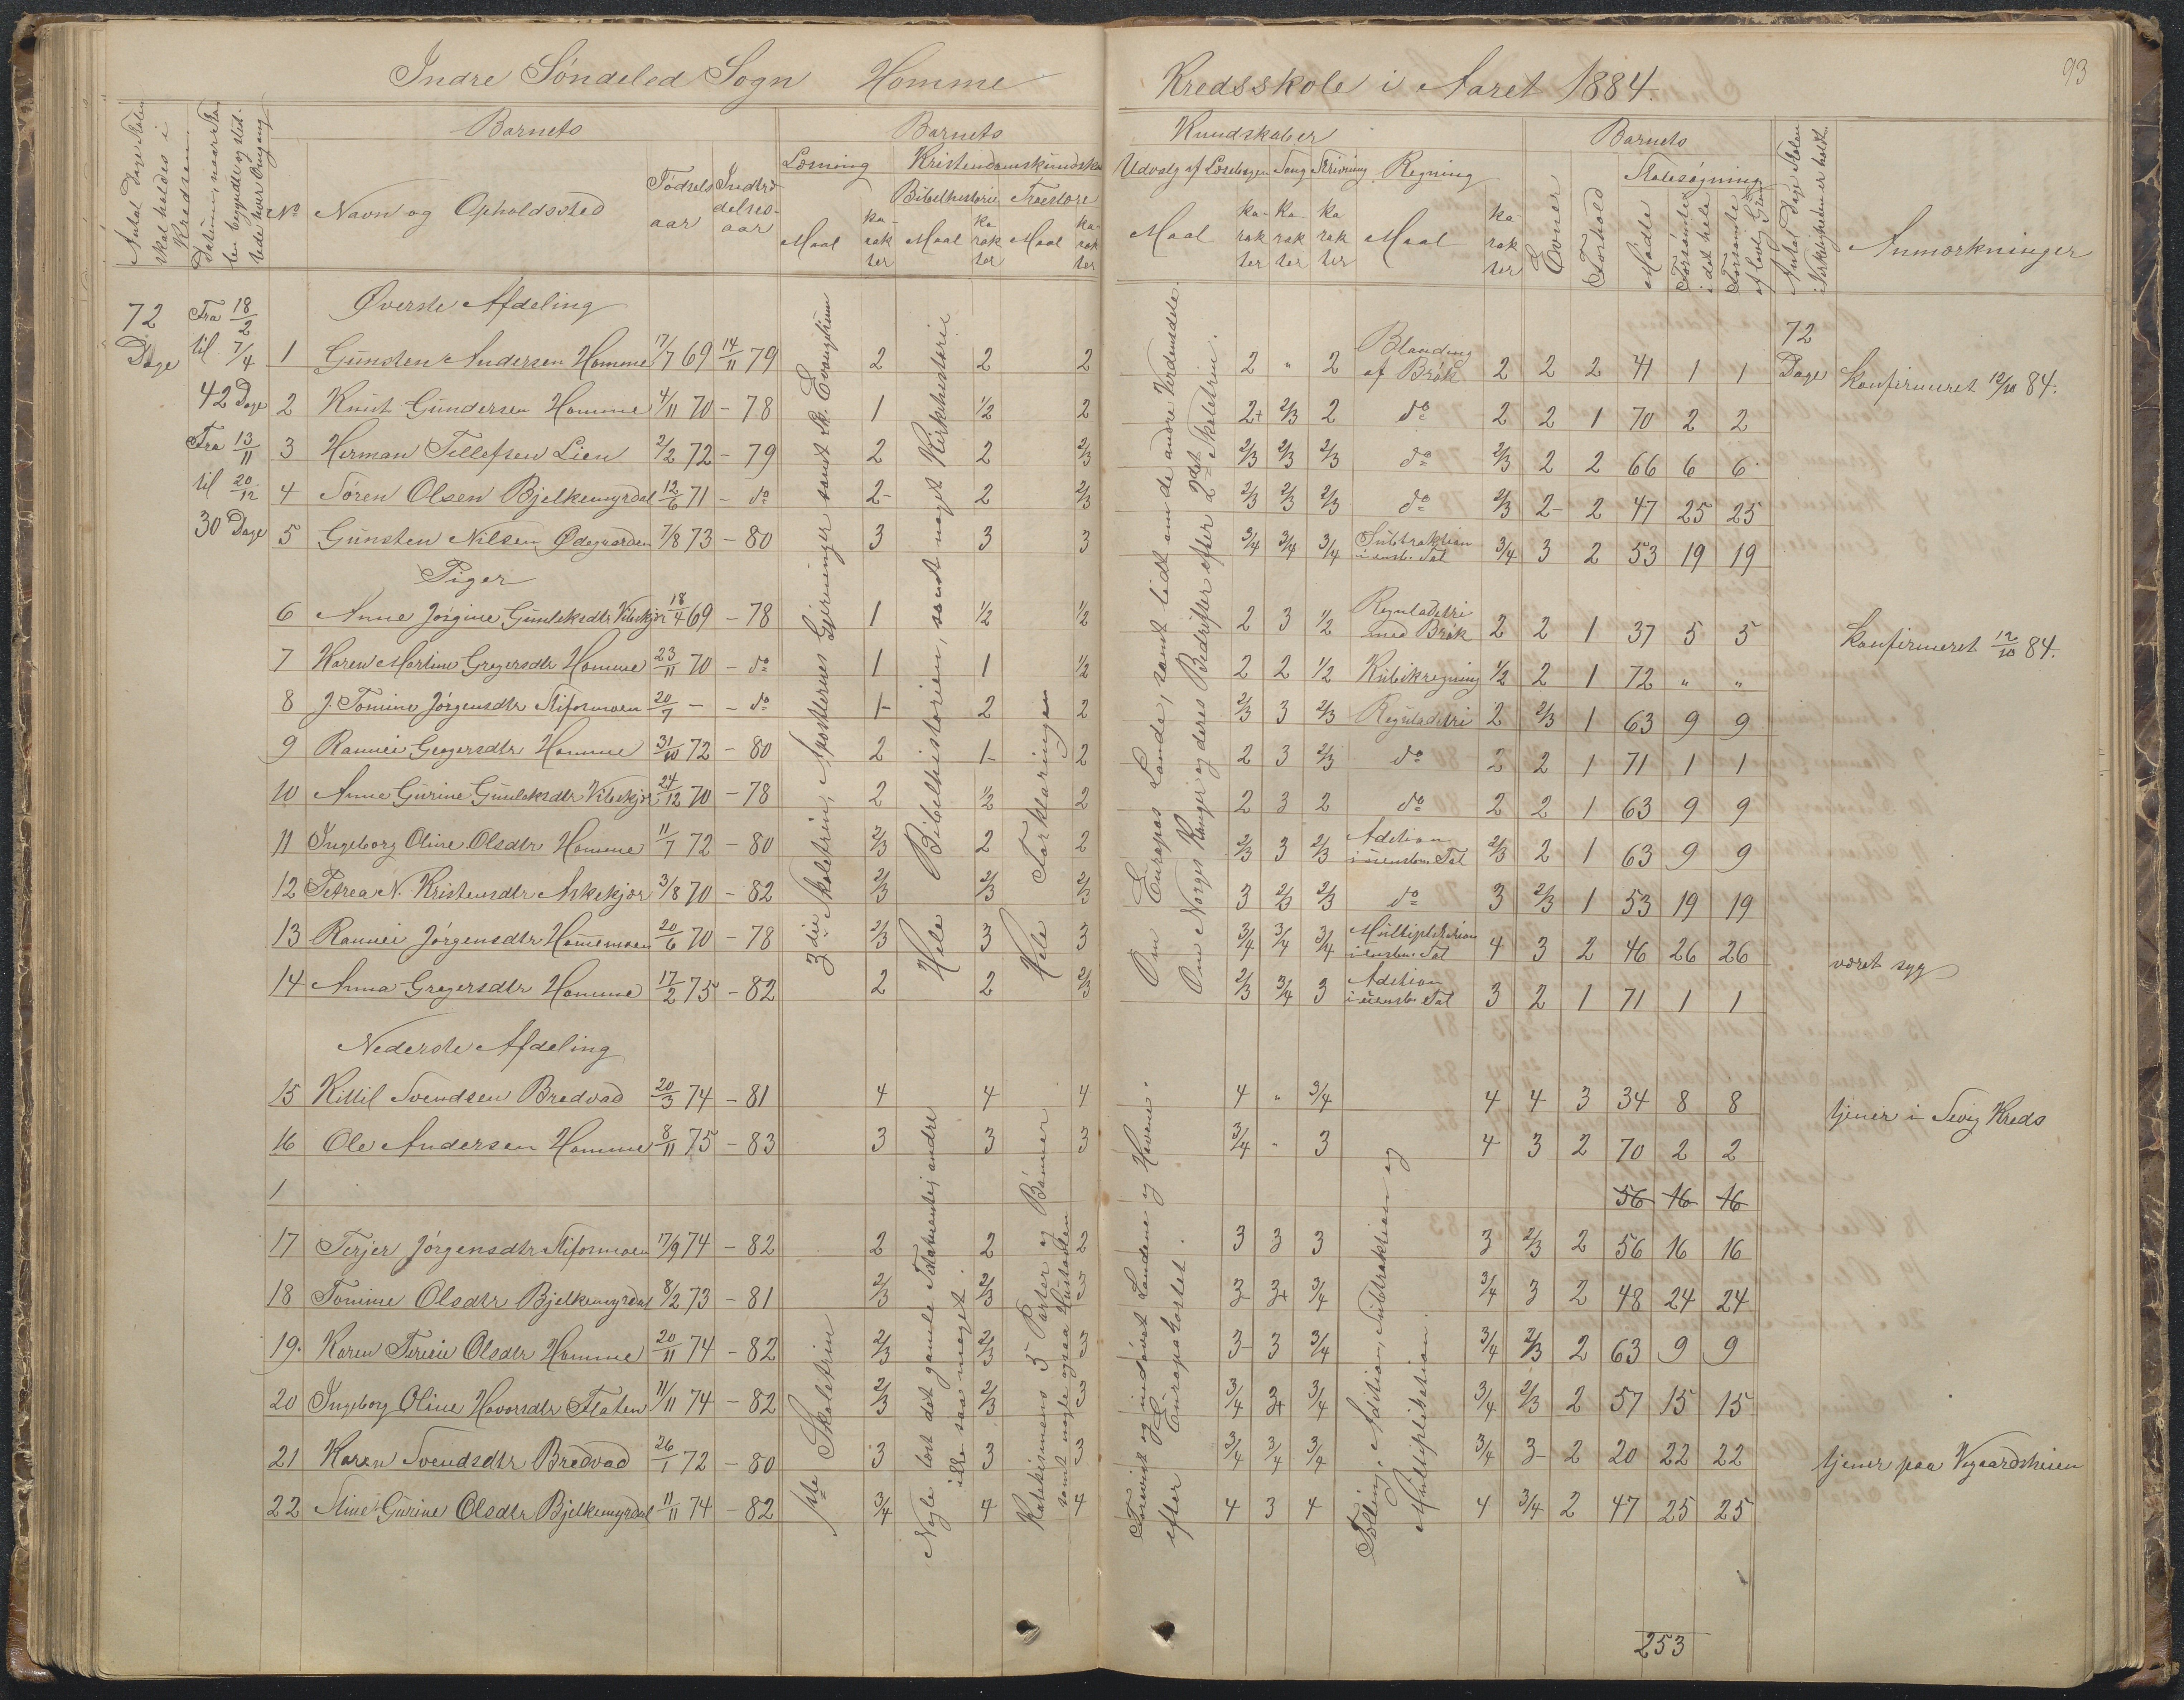 Indre Söndeled Sogn Homme Kredsskole i Aaret 1884. 93
Antal Dage Skolen skal holdes i Kredsen
Barnets Barnets Kundskaber Barnets
Læsning Kristendomskundskab Udvalg af Læsebogen Sang Skrivning Regning Skolesøgning
Bibelhistorie Troeslære
No Navn og Opholdssted Fødselsaar Indtrædelsesaar Maal karakter Maal karakter Maal karakter Maal karakter karakter karakter Maal karakter Evner Forhold Mødte Forsømte i det hele Forsømte af lovlig Grund Antal Dage Skolen i Virkeligheden er holdt Anmærkninger
72 Dage Fra 18/2 til 7/4 42 Dage Fra 13/11 til 20/12 30 Dage
Øverste Afdeling
72 Dage
1 Gunsten Andersen Homme 17/7 69 14/11 79 2 2 2 2 " 2 Blanding af Brøk 2 2 2 41 1 1 Konfirmeret 12/10 84.
2 Knut Gundersen Homme 4/11 70 - 78 1 1/2 2 2+ 2/3 2 do 2 2 1 70 2 2
3 Herman Tellefsen Lien 2/2 72 - 79 2 2 2/3 2/3 2/3 2/3 do 2/3 2 2 66 6 6
4 Søren Olsen Bjelkemyrdal 12/6 71 - do 2- 2 2/3 2/3 2/3 2/3 do 2/3 2- 2 47 25 25
5 Gunsten Nilsen Ødegaarden 7/8 73 - 80 3 3 3 3/4 3/4 3/4 Subtraktion i ensb. Tal 3/4 3 2 53 19 19
Piger
6 Anne Jørgine Gunleksdtr Vibekjær 18/4 69 - 78 1 1/2 1/2 2 3 1/2 Reguladetri med Brøk 2 2 1 37 5 5 Konfirmeret 12/10 84.
7 Karen Martine Gregersdtr Homme 23/11 70 - do 1 1 1/2 2 2 1/2 Kubikregning 1/2 2 1 72 " "
8 J. Tomine Jørgensdtr Stifosmoen 20/7 - - do 1- 2 2 2/3 3 2/3 Reguladetri 2 2/3 1 63 9 9
9 Rannei Gregersdtr Homme 31/10 72 - 80 2 1- 2 2 3 2/3 do 2 2 1 71 1 1
10 Anne Gurine Gunleksdtr Vibekjær 24/12 70 - 78 2 1/2 2 2 3 2 do 2 2 1 63 9 9
11 Ingeborg Oline Olsdtr Homme 11/7 72 - 80 2/3 2 2 2/3 3 2/3 Adition i uensbn. Tal 2/3 2 1 63 9 9
12 Petrea N. Kristensdtr Askekjær 3/8 70 - 82 2/3 2/3 2/3 3 2/3 2/3 do 3 2/3 1 53 19 19
13 Rannei Jørgensdtr Hommemoen 20/6 70 - 78 2/3 3 3 3/4 3/4 3/4 Multiplikation i ensbn. Tal 4 3 2 46 26 26 været syg
14 Anna Gregersdtr Homme 17/2 75 - 82 2 2 2/3 2/3 3/4 3 Adition i uensbn. Tal 3 2 1 71 1 1
3die Skoletrin, Apostlernes Gjerninger samt St. Evangelium
Hele Bibelhistorien, samt noget Kirkehistorie
Hele Forklaringen
Om Europas Lande, samt lidt om de andre Verdensdele.
Om Norges Konger og deres Bedrifter efter 2det Skoletrin.
Nederste Afdeling
15 Kittil Svendsen Bredvad 20/3 74 - 81 4 4 4 4 " 3/4 4 4 3 34 8 8 tjener i Sevig Kreds
16 Ole Andersen Homme 8/11 75 - 83 3 3 3 3/4 " 3 4 3 2 70 2 2
1 56 16 16
17 Terjer Jørgensdtr Stifosmoen 17/9 74 - 82 2 2 2 3 3 3 3 2/3 2 56 16 16
18 Tomine Olsdtr Bjelkemyrdal 8/2 73 - 81 2/3 2/3 3 3- 3+ 3/4 3/4 3 2 48 24 24
19. Karen Terine Olsdtr Homme 20/11 74 - 82 2/3 2/3 3 3- 3 3/4 3/4 2/3 2 63 9 9
20 Ingeborg Oline Havorsdtr Flaten 11/11 74 - 82 2/3 2/3 3 3/4 3+ 3/4 3/4 2/3 2 57 15 15
21 Karen Svendsdtr Bredvad 26/1 72 - 80 3 3 3 3/4 3/4 3/4 3/4 3- 2 20 22 22 tjener paa Vegaardsheien
22 Stine Gurine Olsdtr Bjelkemyrdal 11/11 74 - 82 3/4 4 4 4 3 4 4 3/4 2 47 25 25
1ste Skoletrin
Nogle læst det gamle Testamente, andre ikke saa meget.
Katekismens 5 Parter og Bønner samt nogle ogsaa Hustavlen
og indøvet Landene og Havene efter Europakartet.
Tælling, Adition, Subtraktion og Multiplikation.
253